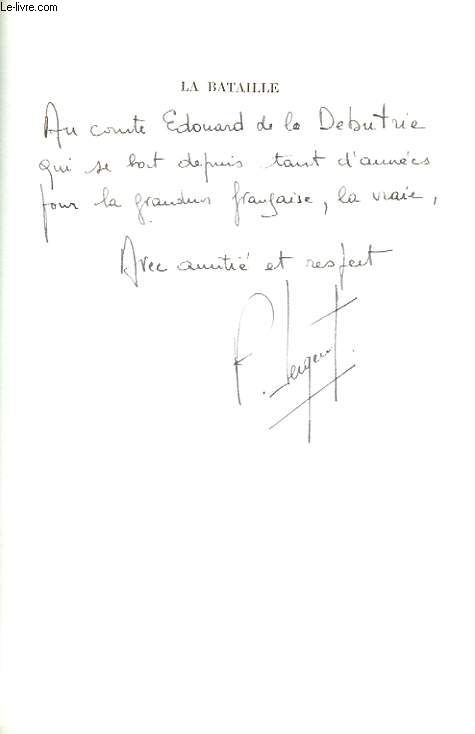 Le-livre.com
LA BATAILLE
Au comte Edouard de la Debutrie
qui se bat depuis tant d'années
pour la grandeur française, la vraie,
Avec amitié et respect
P. Sergent